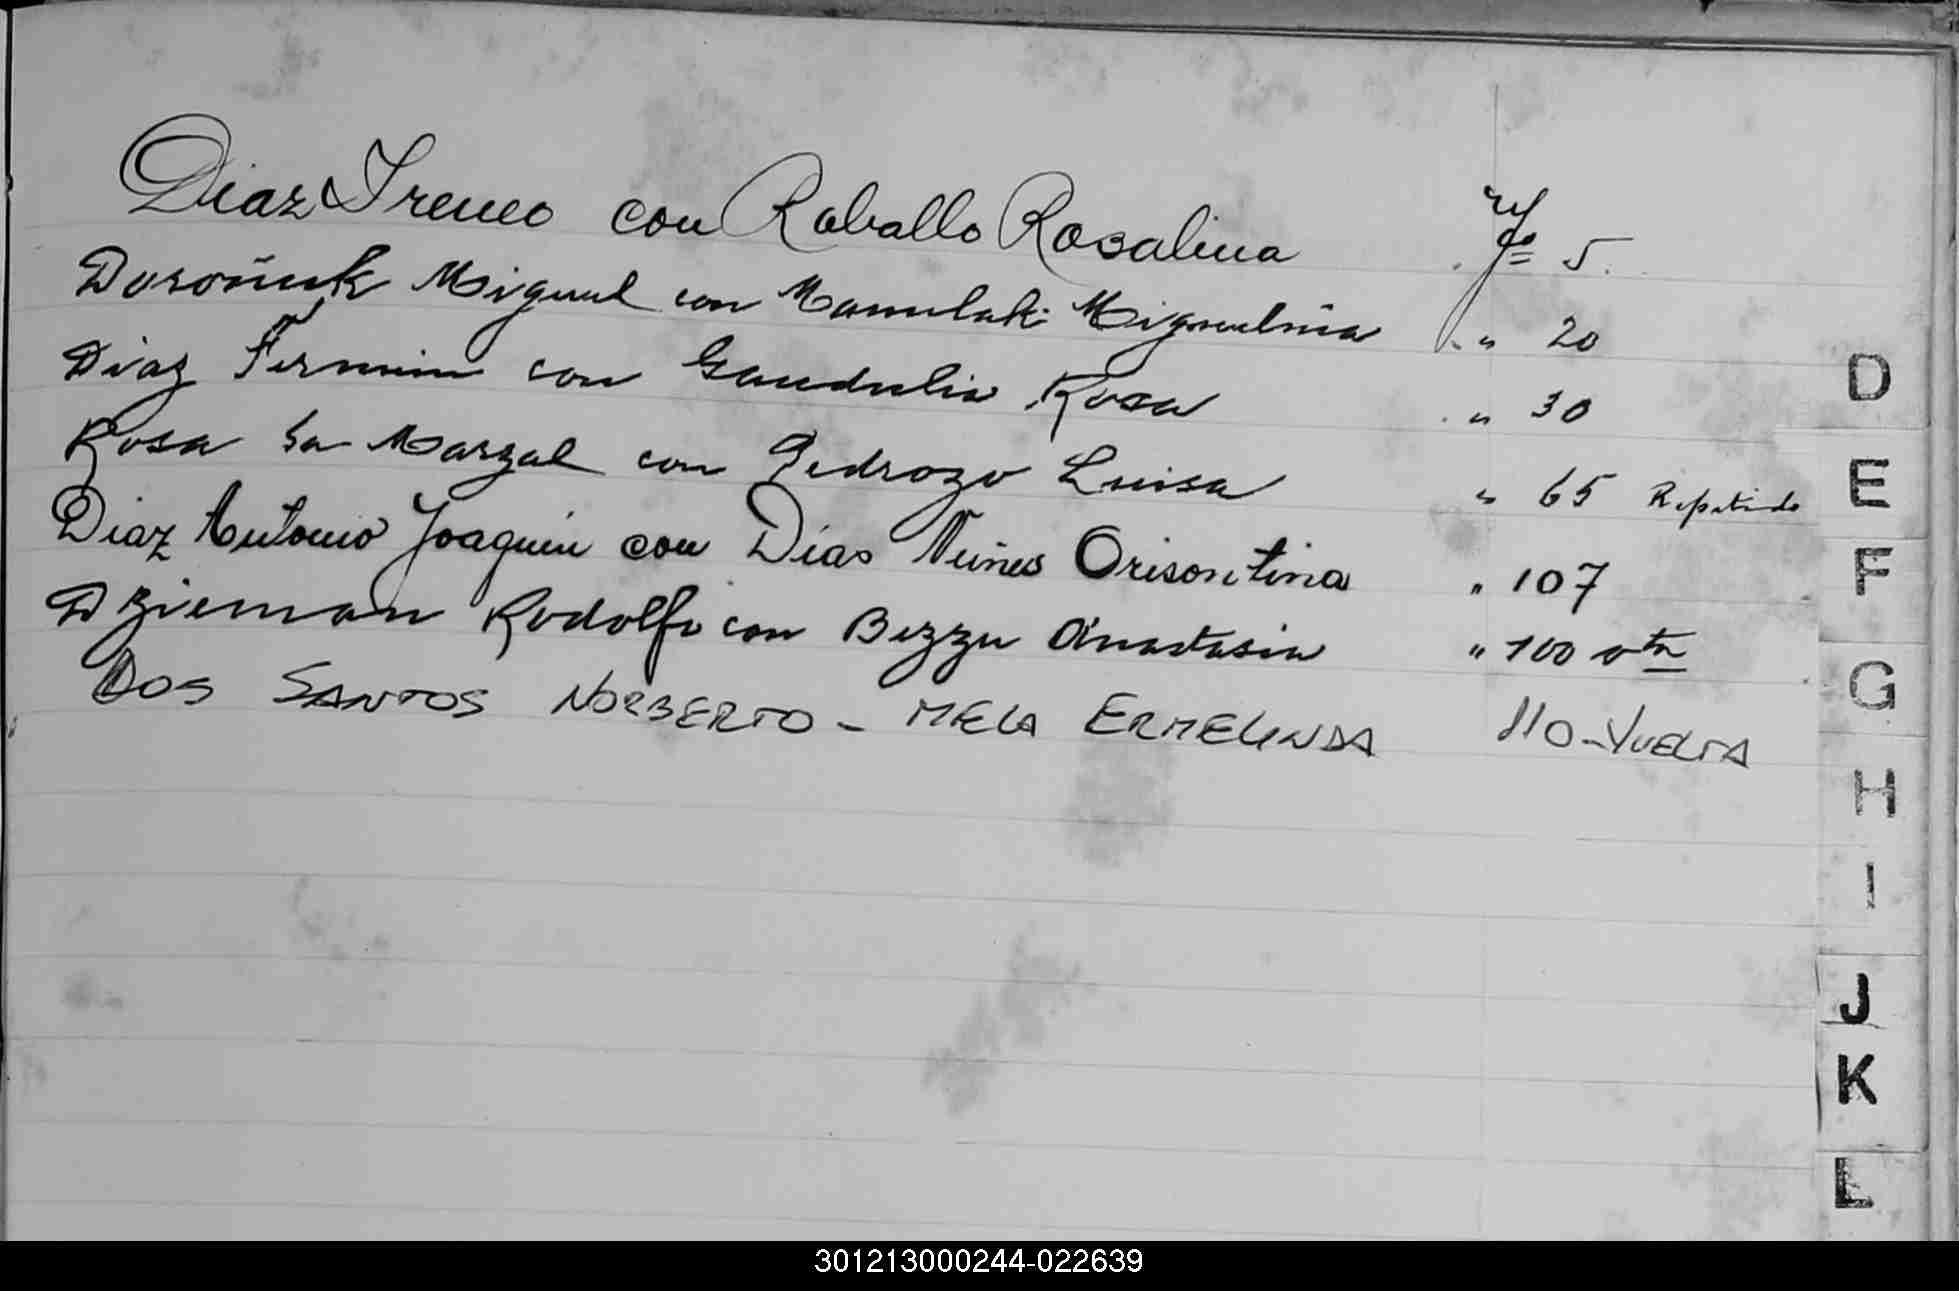 Diaz Ireneo con Raballo Rosalina Fº 5.
Miguel con Miguelina " 20
Diaz Fermin con Gaudulia Rosa " 30
Rosa Sa Marzal con Pedrozo Luisa " 65 Repetido
Diaz Antonio Joaquin con Dias Nuñes Orisontina " 107
Dzieman Rodolfo con Bezzu Anastasia " 100 vta
DOS SANTOS NORBERTO - MELA ERMELINDA 110-VUELTA
D
E
F
G
H
I
J
K
L
301213000244-022639